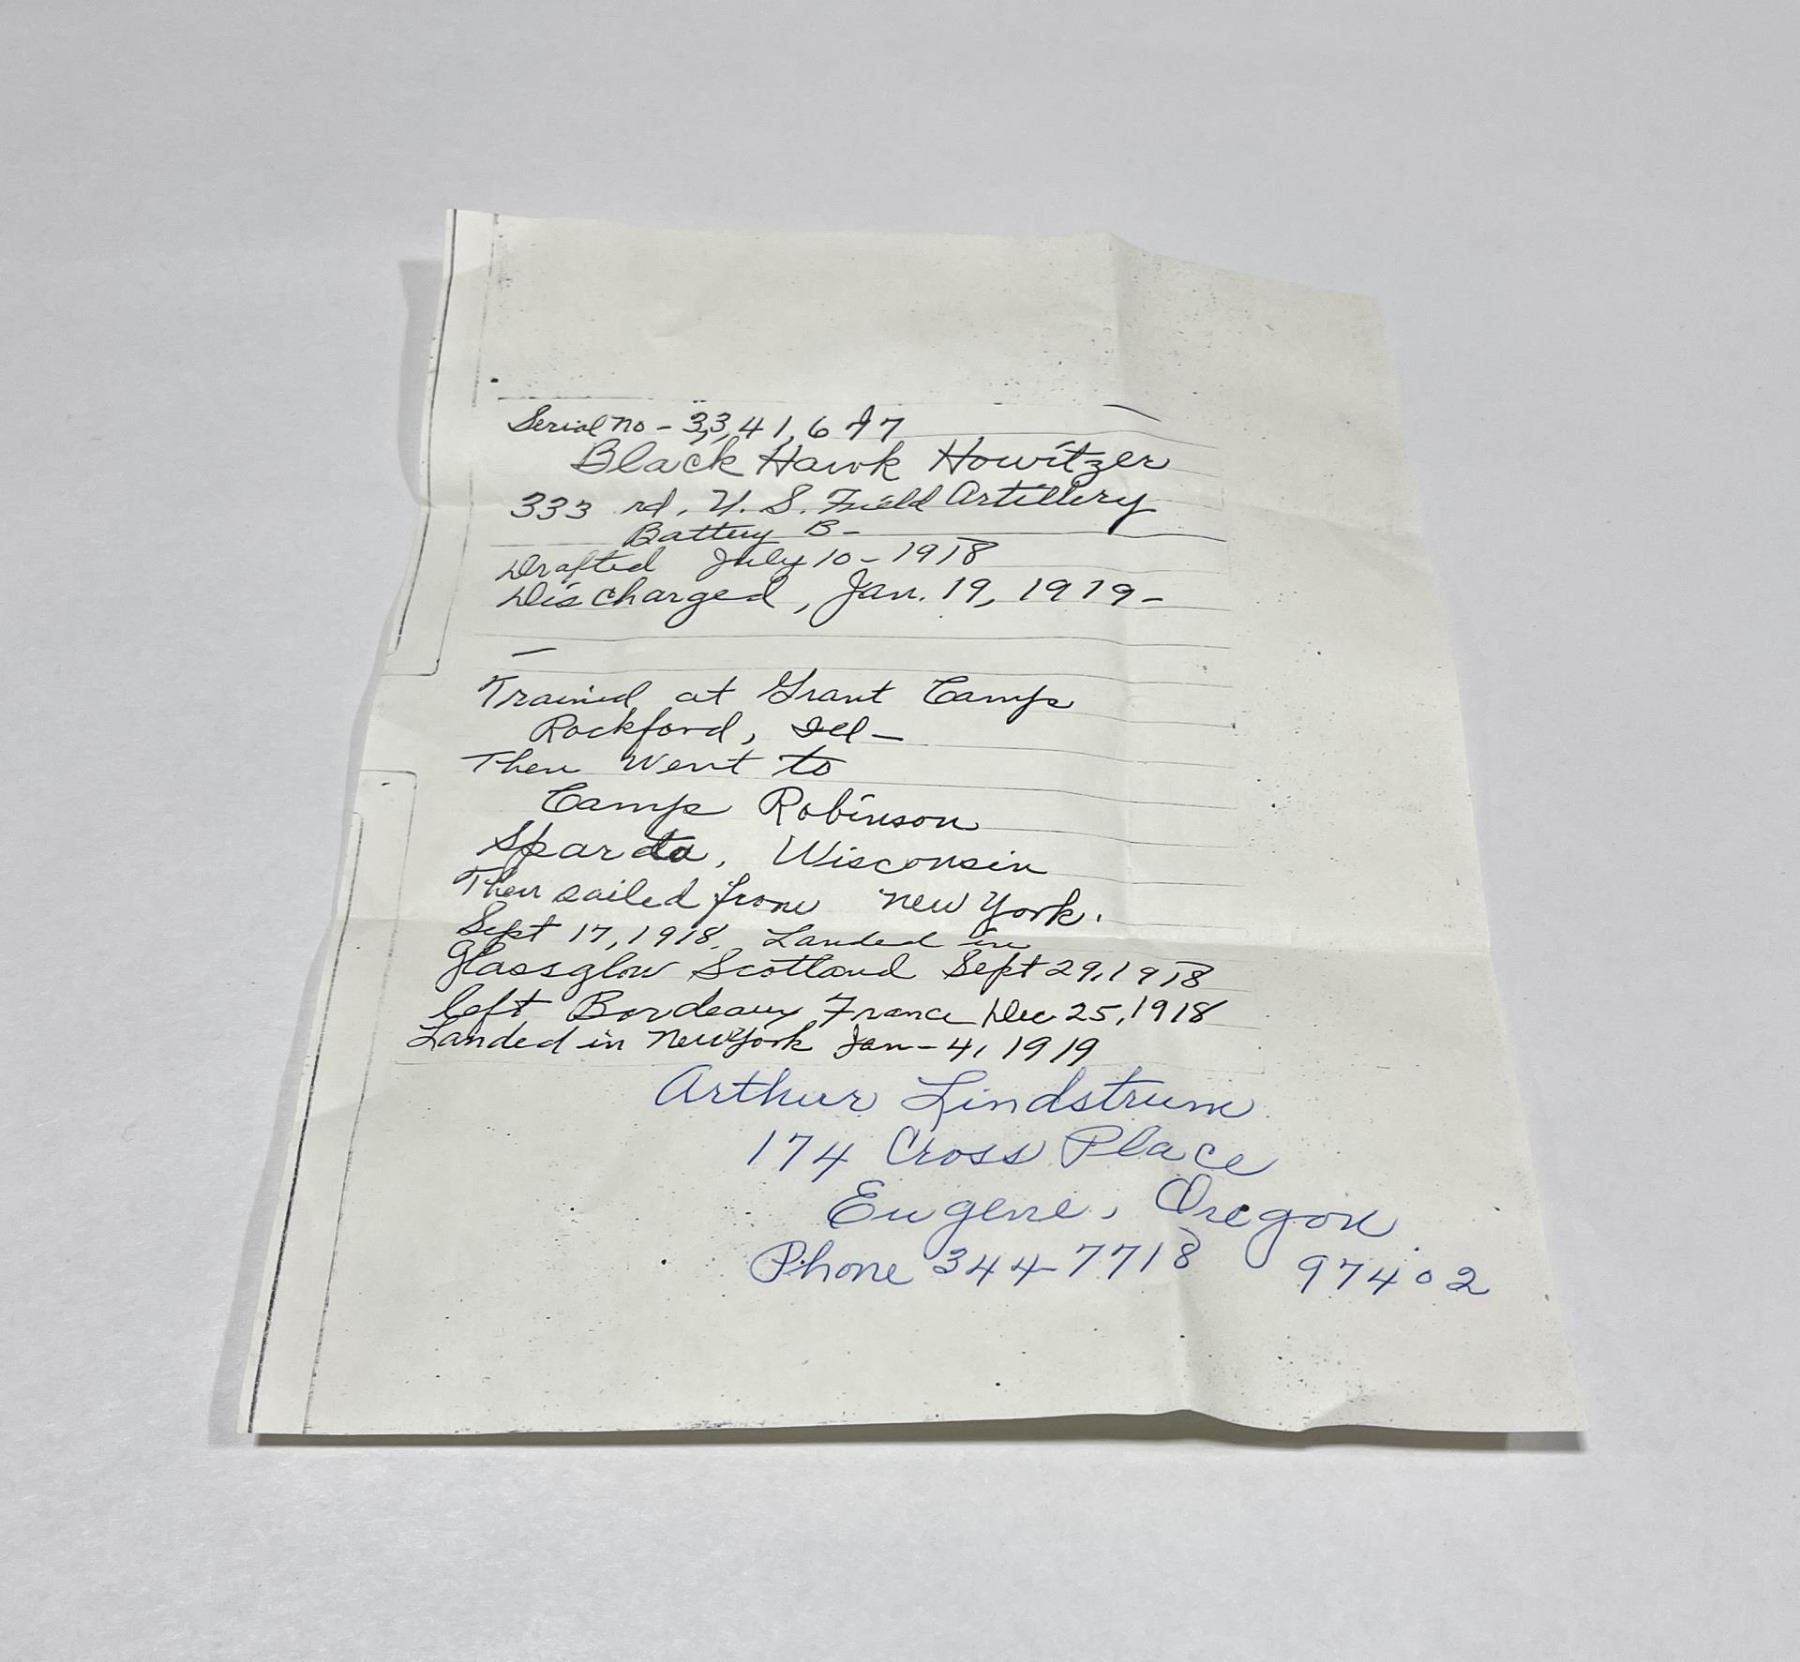 Serial No - 3,3,41,6 77
Black Hawk Howitzer
333 rd. U. S. Field Artillery
Battery B-
Drafted July 10 - 1918
Discharged, Jan. 19, 1919-
Trained at Grant Camp
Rockford, Ill -
Then Went to
Camp Robinson
Sparta, Wisconsin
Then sailed from New York.
Sept 17, 1918. Landed in
Glassglow Scotland Sept 29, 1918
left Bordeaux France Dec 25, 1918
Landed in New York Jan - 4, 1919
Arthur Lindstrum
174 Cross Place
Eugene, Oregon
Phone 344-7718 97402